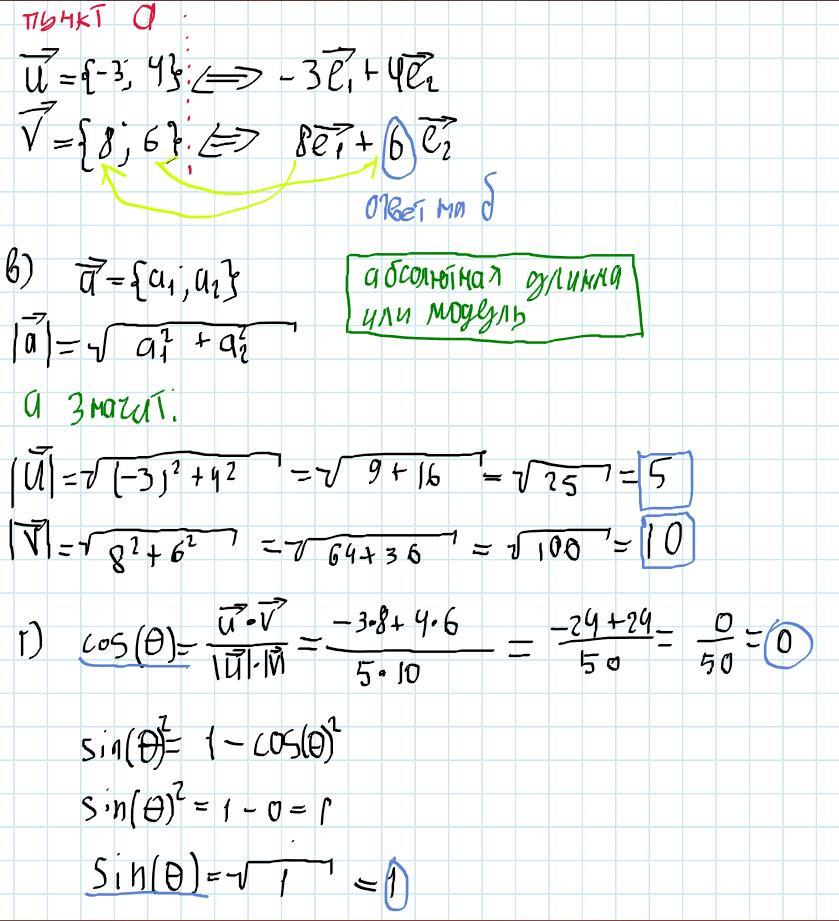 пункт а
u⃗ = {-3; 4} <=> -3e⃗₁ + 4e⃗₂
v⃗ = {8; 6} <=> 8e⃗₁ + 6 e⃗₂
ответ на б
в) a⃗ = {a₁; a₂}
абсолютная длинна
или модуль
|a⃗| = √(a₁² + a₂²)
а значит:
|u⃗| = √((-3)² + 4²) = √(9 + 16) = √25 = 5
|v⃗| = √(8² + 6²) = √(64 + 36) = √100 = 10
г) cos(θ) = (u⃗·v⃗)/(|u⃗|·|v⃗|) = (-3·8 + 4·6)/(5·10) = (-24 + 24)/50 = 0/50 = 0
sin(θ)² = 1 - cos(θ)²
sin(θ)² = 1 - 0 = 1
sin(θ) = √1 = 1